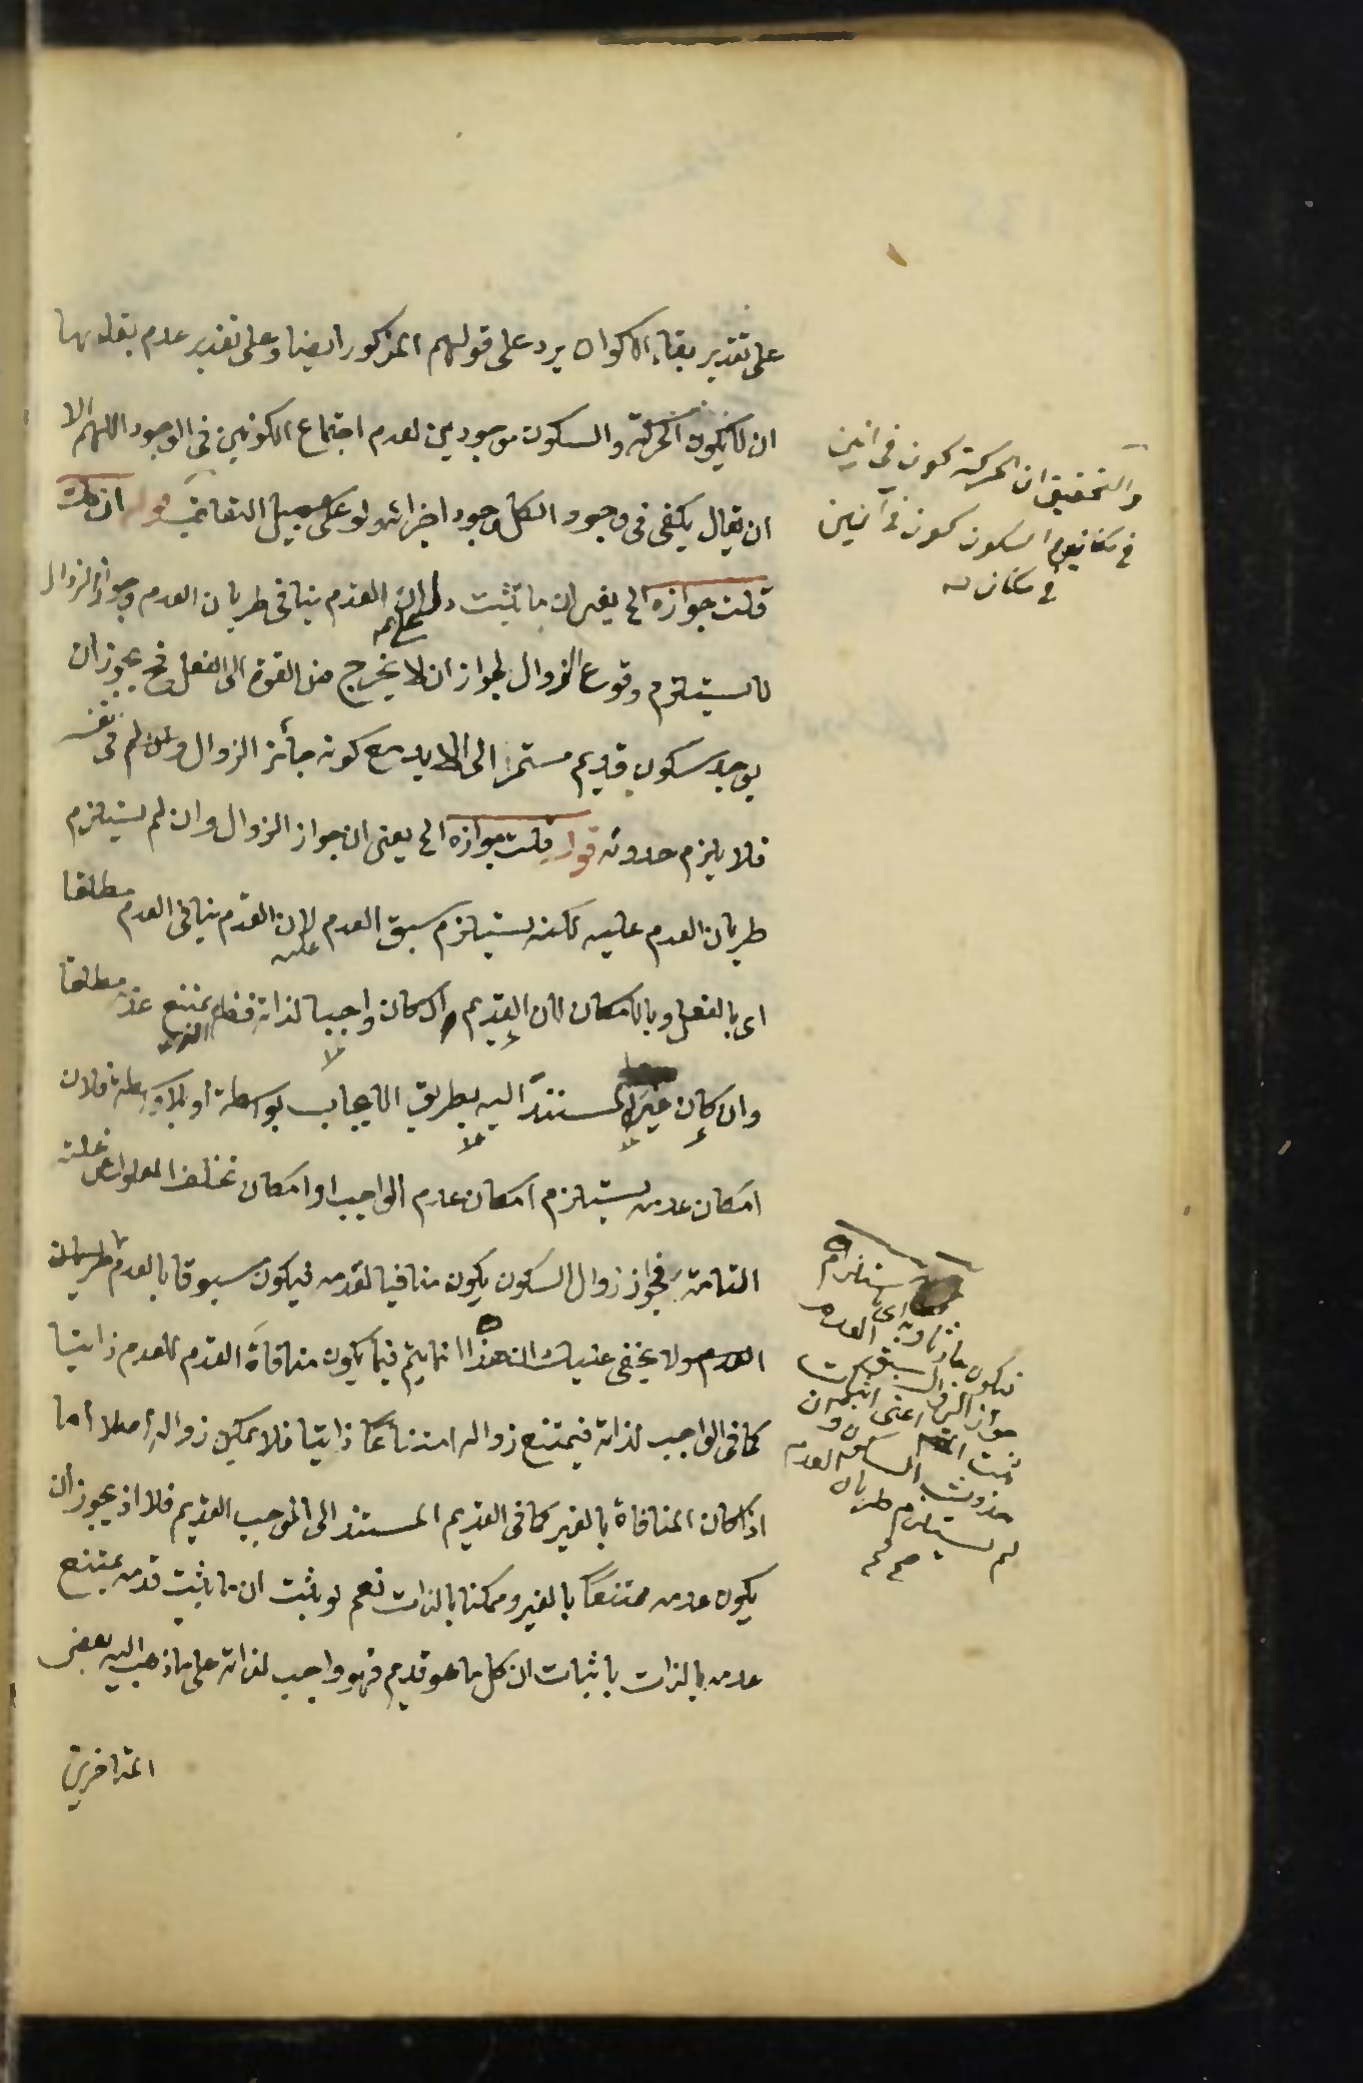 على تقدير بقاء الاكوان يرد على قولهم المذكور ايضا وعلى تقدير عدم بقاءها
ان لا يكون الحركة والسكون موجودين لعدم اجتماع الكونين فى الوجود اللهم الا
ان يقال يكفى فى وجود الكل وجود اجزائه ولو على سبيل التعاقب قوله فان قلت
قلت جوازه الخ يعنى ان ما ثبت ان القدم ينافى طريان العدم وجواز الزوال
لا يستلزم وقوع الزوال لجواز ان لا يخرج من القوة الى الفعل فح يجوز ان
يوجد سكون قديم مستمرا الى الابد مع كونه جائز الزوال فى نفسه
فلا يلزم حدوثه قوله قلت جوازه الخ يعنى ان جواز الزوال وان لم يستلزم
طريان العدم عليه لكنه يستلزم سبق العدم عليه لان القدم ينافى العدم مطلقا
اى بالفعل وبالامكان لان القديم ان كان واجبا لذاته فظ يمتنع عدمه مطلقا
وان كان غيره مستندا اليه بطريق الايجاب بواسطة او بلا واسطة فلان
امكان عدمه يستلزم امكان عدم الواجب او امكان تخلف المعلول عن علته
التامة فجواز زوال السكون يكون منافيا لقدمه فيكون مسبوقا بالعدم طريان
العدم ولا يخفى عليك ان هذا انما يتم فيما يكون منافاة القدم للعدم ذاتيا
كما فى الواجب لذاته فيمتنع زواله امتناعا ذاتيا فلا يمكن زواله اصلا اما
اذا كان المنافاة بالغير كما فى القديم المستند الى الموجب القديم فلا اذ يجوز ان
يكون عدمه ممتنعا بالغير وممكنا بالذات نعم لو ثبت ان ما يثبت قدمه يمتنع
عدمه بالذات باثبات ان كل ما هو قديم فهو واجب لذاته على ما ذهب اليه بعض
المتأخرين
والتحقيق ان الحركة كون فى آنين
فى مكانين والسكون كون فى آنين
فى مكان منه
يستلزم
جواز الزوال
حدوث السكون وان
لم يستلزم طريان العدم
صح